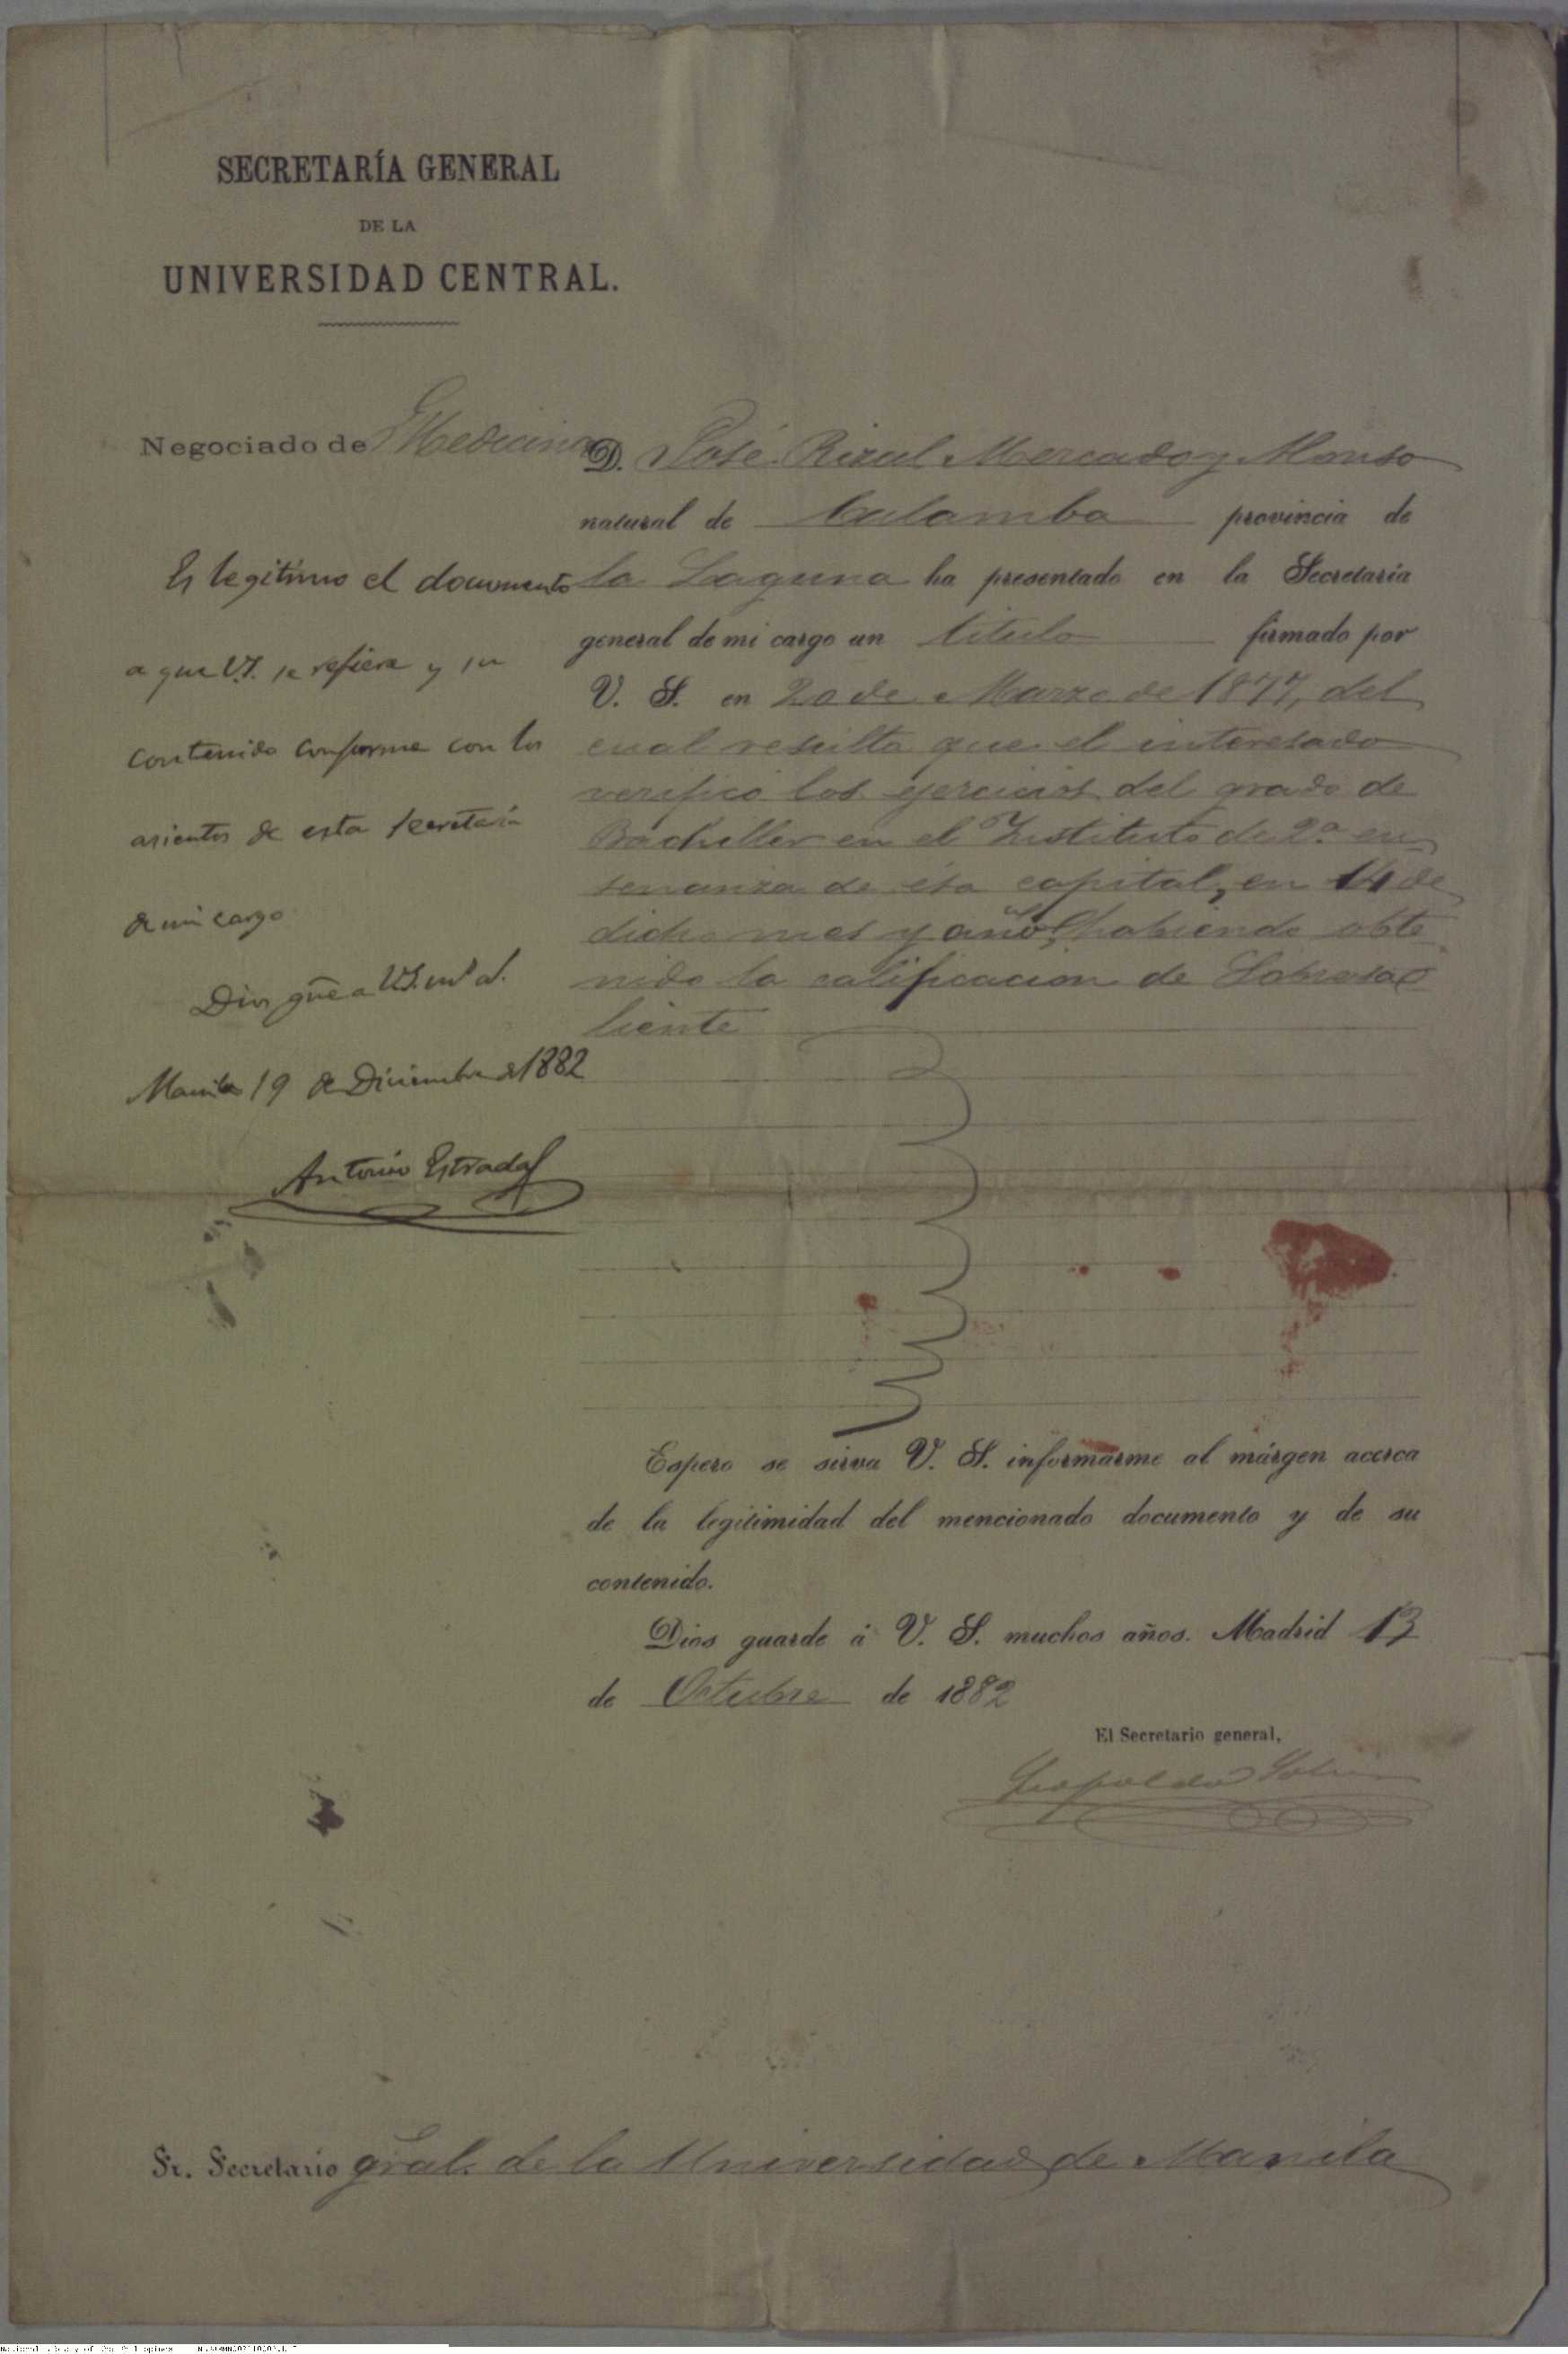 SECRETARÍA GENERAL
DE LA
UNIVERSIDAD CENTRAL.
Negociado de Medicina
Es legitimo el documento
a que V.S. se refiere y su
contenido conforme con los
asientos de esta Secretaria
de mi cargo
Dios gûe a V.S. ms as.
Manila 19 de Diciembre de 1882
Antonio Estrada
D. José Rizal Mercado y Alonso
natural de Calamba provincia de
la Laguna ha presentado en la Secretaría
general de mi cargo un titulo firmado por
V. S. en 20 de Marzo de 1877, del
cual resulta que el interesado
verificó los ejercicios del grado de
Bachiller en el Instituto de 2.a en
senanza de esa capital, en 14 de
dicho mes y año, habiendo obte
nido la calificacion de Sobresa
liente
Espero se sirva V. S. informarme al márgen acerca
de la legitimidad del mencionado documento y de su
contenido.
Dios guarde á V. S. muchos años. Madrid 13
de Octubre de 1882
El Secretario general,
Leopoldo
Sr. Secretario gral. de la Universidad de Manila